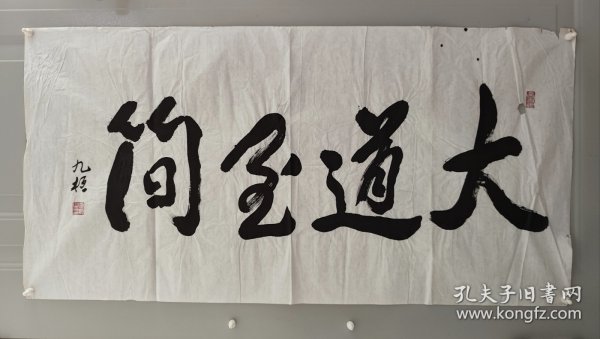 大道至简
九桓
孔夫子旧书网
www.kongfz.com